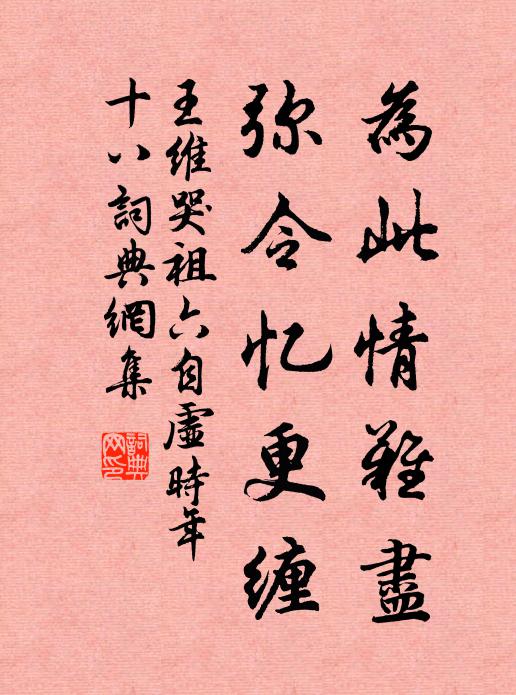 為此情難盡
弥令忆更纏
王維哭祖六自虛時年
十八詞典網集
詞典
网印